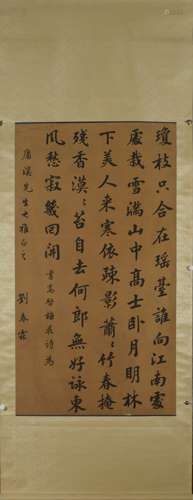 瓊枝只合在瑤臺誰向江南處
處栽雪滿山中高士卧月明林
下美人來寒依疎影蕭々竹春掩
殘香漠々苔自去何郎無好詠東
風愁寂幾回開書高啓梅花詩為
先生大雅正之
劉春霖